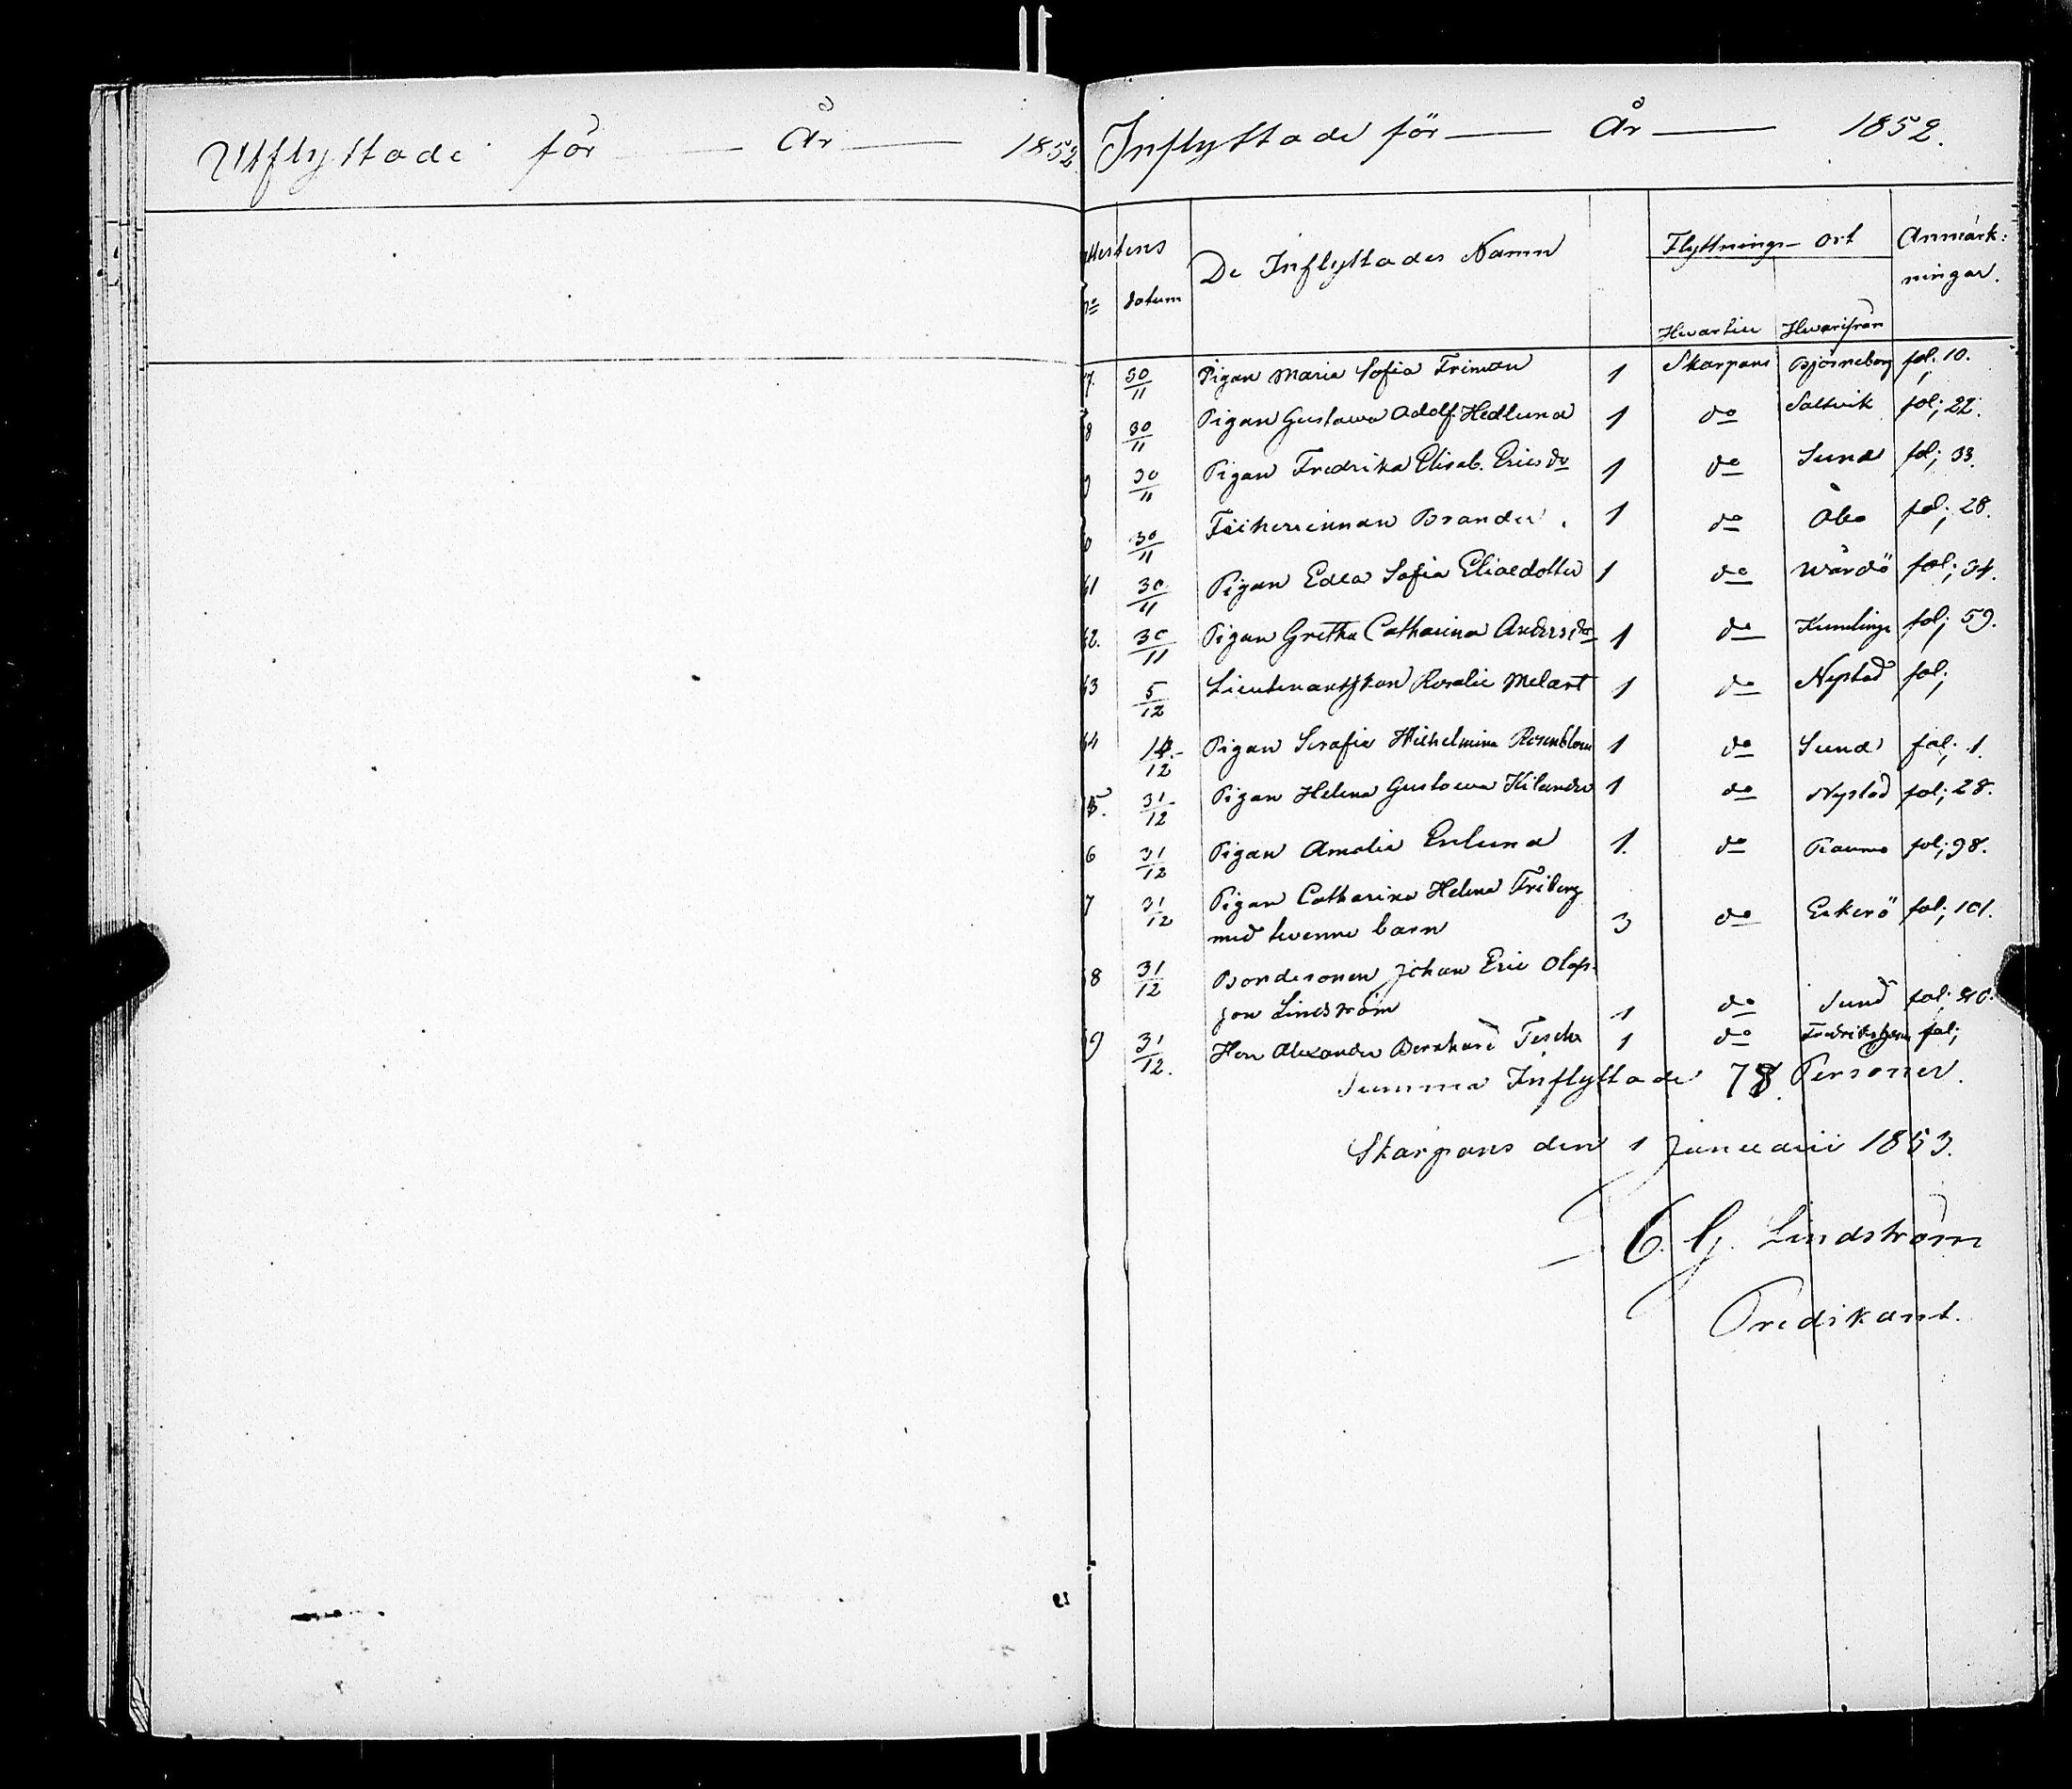 Utflyttade för År 1852
Inflyttade för År 1852.
Attestens De Inflyttades Namn Flyttnings-ort Anmärk:
No datum Hvartill Hvarifrån ningar.
7. 30/11 Pigan Maria Sofia Friman 1 Skarpans Björneborg fol; 10.
8 30/11 Pigan Gustawa Adolf. Hedlund 1 do Saltvik fol; 22.
9 30/11 Pigan Fredrika Elisab. Ericsdr 1 do Sund fol; 33.
0 30/11 Brander 1 do Åbo fol; 28.
61 30/11 Pigan Edla Sofia Eliaedotter 1 do Wårdö fol; 34.
62. 30/11 Pigan Gretha Catharina Andersdr 1 do Kumlinge fol; 59.
63 5/12 Lieutenantskan Rosalie Melart 1 do Nystad fol;
64 14/12 Pigan Serafia Wilhelmina Rosenblom 1 do Sund fol; 1.
5. 31/12 Pigan Helena Gustawa Kilander 1 do Nystad fol; 28.
6 31/12 Pigan Amalia Enlund 1. do Raumo fol; 98.
7 31/12 Pigan Catharina Helena Friberg
med tvenne barn 3 do Eckerö fol; 101.
68 31/12 Bondesonen Johan Eric Olofs-
son Lindström 1 do Sund fol;
9 31/12. Herr Alexander Bernhard Tesche 1 do Fredrikshamn fol;
Summa Inflyttade 78 Personer.
Skarpans den 1 Januarii 1853.
C. G. Lindström
Predikant.